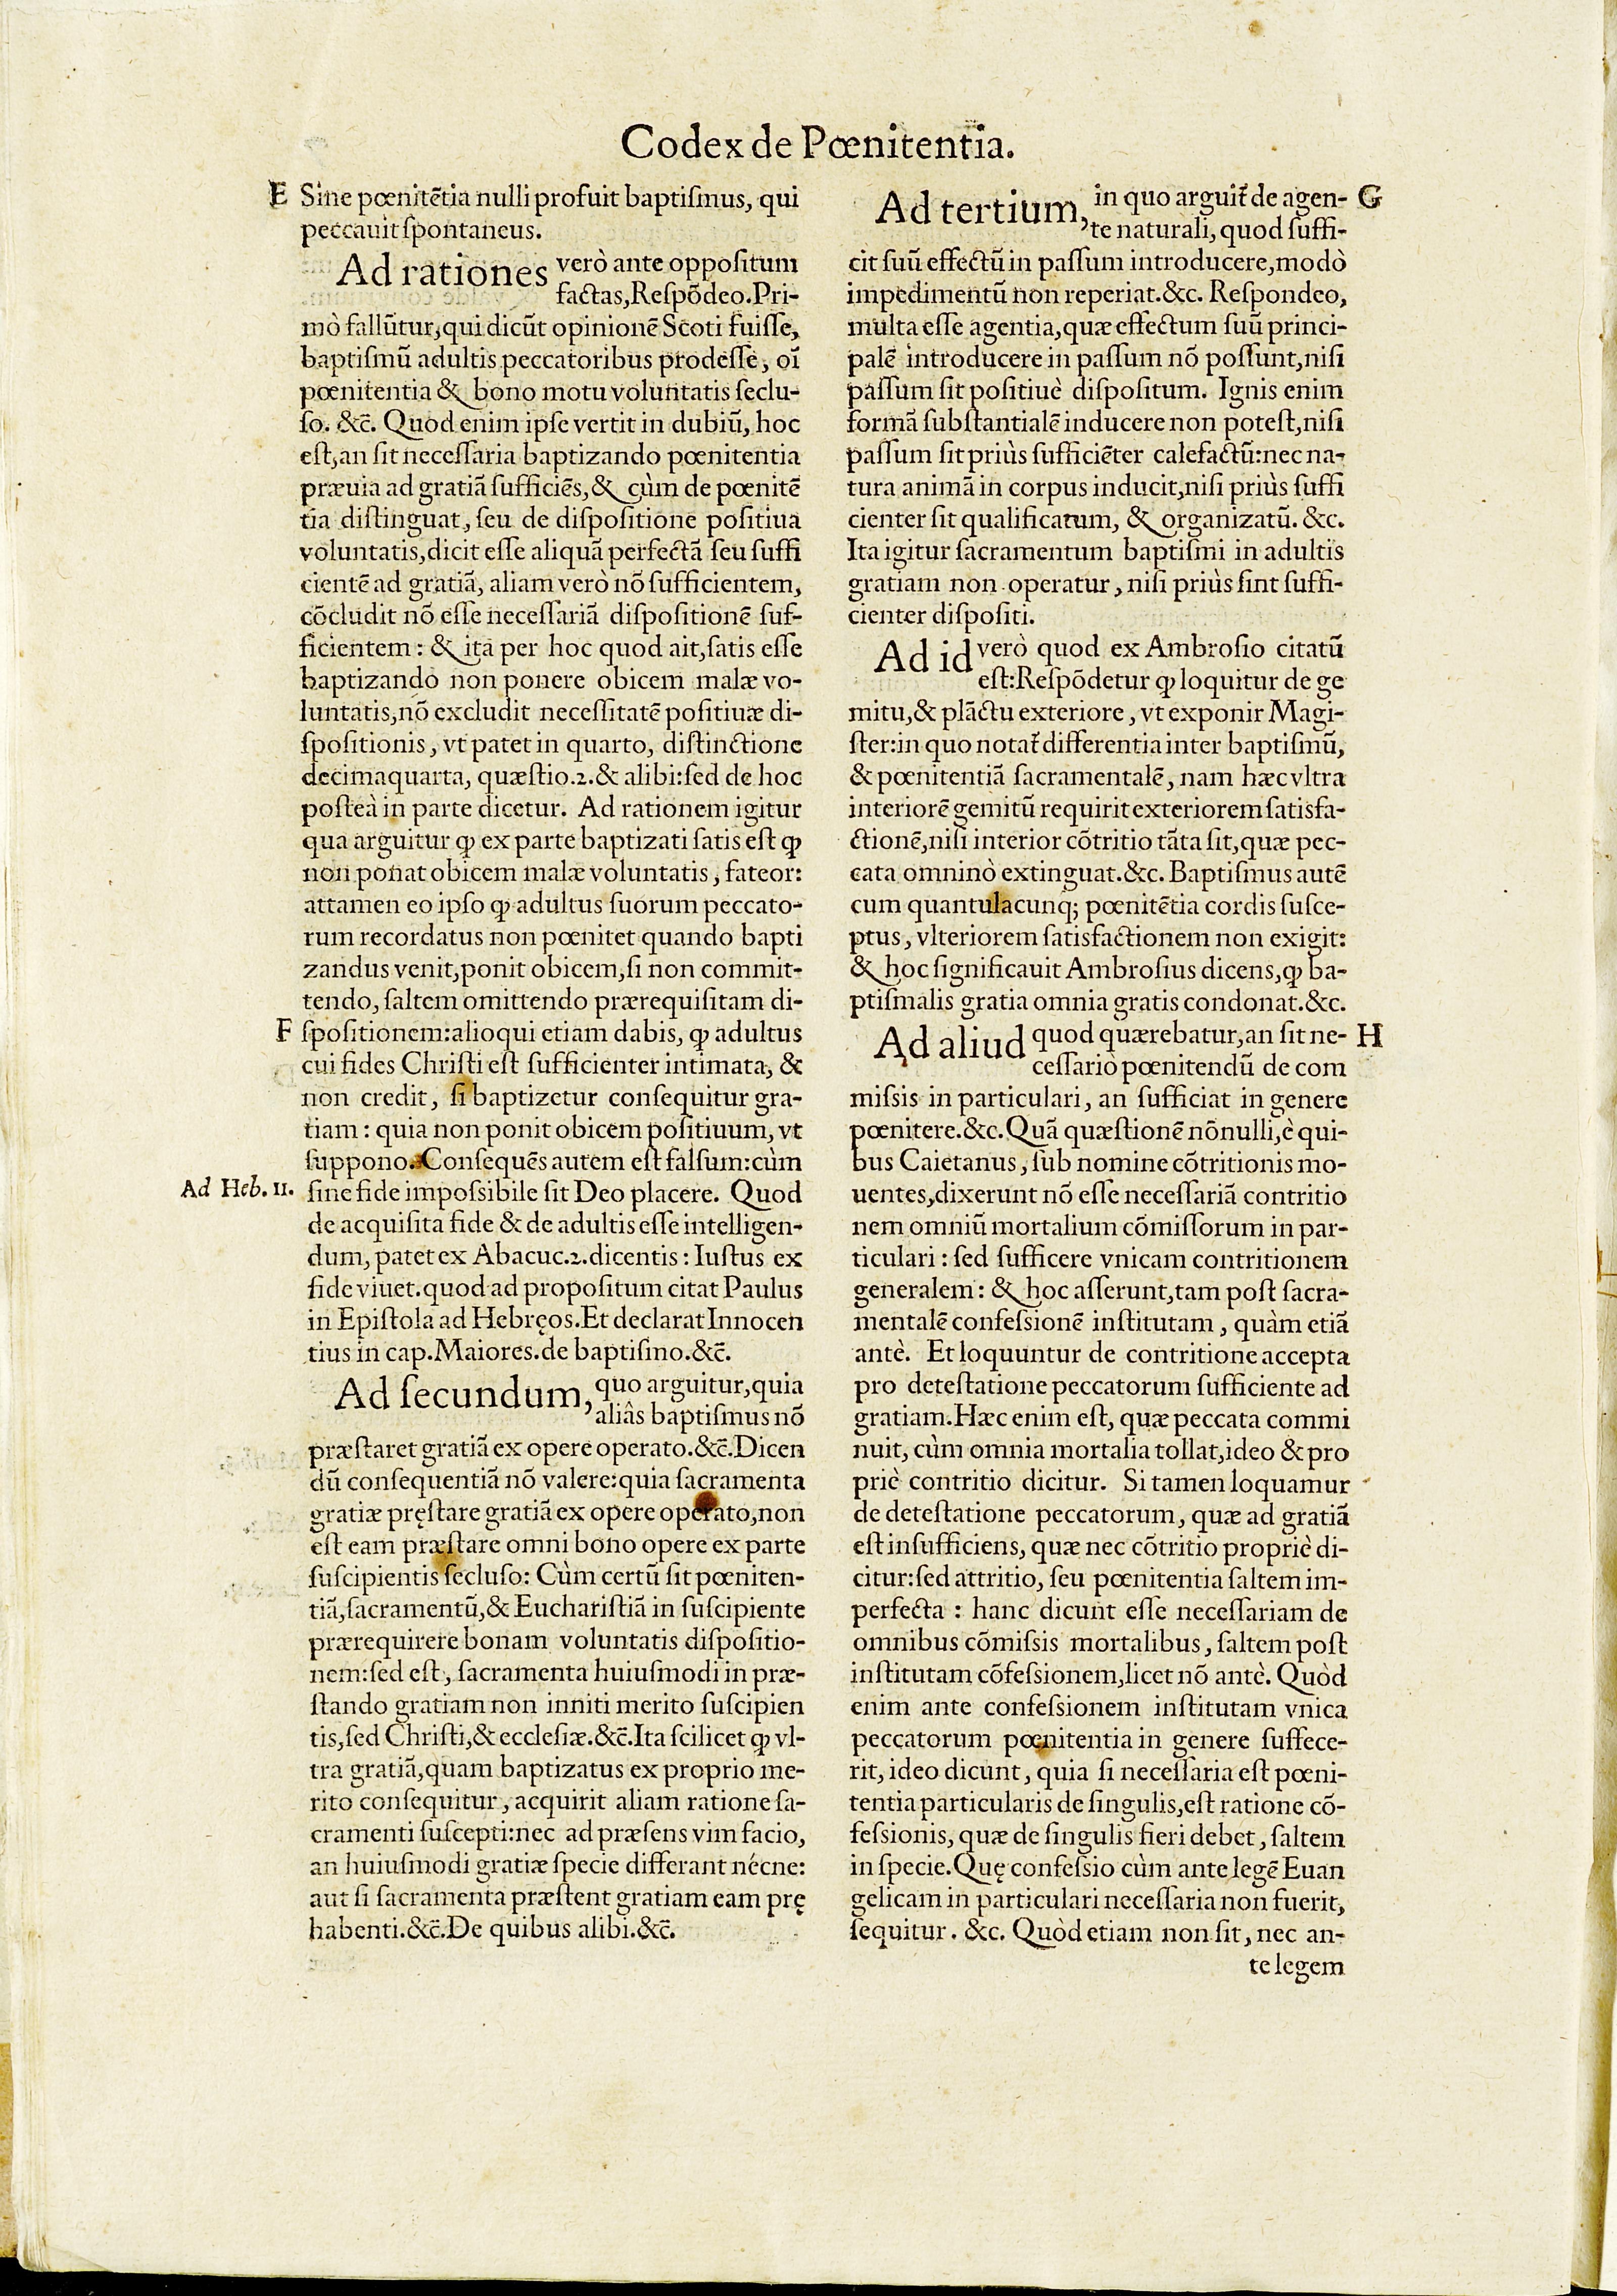 Codex de Pœnitentia.
E Sine pœnitẽtia nulli profuit baptiſmus, qui
peccauit ſpontaneus.
Ad rationes verò ante oppoſitum
factas, Reſpõdeo. Pri-
mò fallũtur, qui dicũt opinionẽ Scoti fuiſſe,
baptiſmũ adultis peccatoribus prodeſſe, oĩ
pœnitentia & bono motu voluntatis ſeclu-
ſo. &c̃. Quod enim ipſe vertit in dubiũ, hoc
eſt, an ſit neceſſaria baptizando pœnitentia
præuia ad gratiã ſufficiẽs, & cùm de pœnitẽ
tia diſtinguat, ſeu de diſpoſitione poſitiua
voluntatis, dicit eſſe aliquã perfectã ſeu ſuffi
cientẽ ad gratiã, aliam verò nõ ſufficientem,
cõcludit nõ eſſe neceſſariã diſpoſitionẽ ſuf-
ficientem: & ita per hoc quod ait, ſatis eſſe
baptizando non ponere obicem malæ vo-
luntatis, nõ excludit neceſſitatẽ poſitiuæ di-
ſpoſitionis, vt patet in quarto, diſtinctione
decimaquarta, quæſtio.2. & alibi: ſed de hoc
poſteà in parte dicetur. Ad rationem igitur
qua arguitur ꝙ ex parte baptizati ſatis eſt ꝙ
non ponat obicem malæ voluntatis, fateor:
attamen eo ipſo ꝙ adultus ſuorum peccato-
rum recordatus non pœnitet quando bapti
zandus venit, ponit obicem, ſi non commit-
tendo, ſaltem omittendo prærequiſitam di-
F ſpoſitionem: alioqui etiam dabis, ꝙ adultus
cui fides Chriſti eſt ſufficienter intimata, &
non credit, ſi baptizetur conſequitur gra-
tiam: quia non ponit obicem poſitiuum, vt
ſuppono. Conſequẽs autem eſt falſum: cùm
Ad Heb. 11. ſine fide impoſsibile ſit Deo placere. Quod
de acquiſita fide & de adultis eſſe intelligen-
dum, patet ex Abacuc.2. dicentis: Iuſtus ex
fide viuet. quod ad propoſitum citat Paulus
in Epiſtola ad Hebręos. Et declarat Innocen
tius in cap. Maiores. de baptiſmo. &c̃.
Ad ſecundum, quo arguitur, quia
aliâs baptiſmus nõ
præſtaret gratiã ex opere operato. &c̃. Dicen
dũ conſequentiã nõ valere: quia ſacramenta
gratiæ pręſtare gratiã ex opere operato, non
eſt eam præſtare omni bono opere ex parte
ſuſcipientis ſecluſo: Cùm certũ ſit pœniten-
tiã, ſacramentũ, & Euchariſtiã in ſuſcipiente
prærequirere bonam voluntatis diſpoſitio-
nem: ſed eſt, ſacramenta huiuſmodi in præ-
ſtando gratiam non inniti merito ſuſcipien
tis, ſed Chriſti, & eccleſiæ. &c̃. Ita ſcilicet ꝙ vl-
tra gratiã, quam baptizatus ex proprio me-
rito conſequitur, acquirit aliam ratione ſa-
cramenti ſuſcepti: nec ad præſens vim facio,
an huiuſmodi gratiæ ſpecie differant nécne:
aut ſi ſacramenta præſtent gratiam eam prę
habenti. &c̃. De quibus alibi. &c̃.
Ad tertium, in quo arguit̃ de agen- G
te naturali, quod ſuffi-
cit ſuũ effectũ in paſſum introducere, modò
impedimentũ non reperiat. &c. Reſpondeo,
multa eſſe agentia, quæ effectum ſuũ princi-
palẽ introducere in paſſum nõ poſſunt, niſi
paſſum ſit poſitiuè diſpoſitum. Ignis enim
formã ſubſtantialẽ inducere non poteſt, niſi
paſſum ſit priùs ſufficiẽter calefactũ: nec na-
tura animã in corpus inducit, niſi priùs ſuffi
cienter ſit qualificatum, & organizatũ. &c.
Ita igitur ſacramentum baptiſmi in adultis
gratiam non operatur, niſi priùs ſint ſuffi-
cienter diſpoſiti.
Ad id verò quod ex Ambroſio citatũ
eſt: Reſpõdetur ꝙ loquitur de ge
mitu, & plãctu exteriore, vt exponir Magi-
ſter: in quo notat̃ differentia inter baptiſmũ,
& pœnitentiã ſacramentalẽ, nam hæc vltra
interiorẽ gemitũ requirit exteriorem ſatisfa-
ctionẽ, niſi interior cõtritio tãta ſit, quæ pec-
cata omninò extinguat. &c. Baptiſmus autẽ
cum quantulacunq; pœnitẽtia cordis ſuſce-
ptus, vlteriorem ſatisfactionem non exigit:
& hoc ſignificauit Ambroſius dicens, ꝙ ba-
ptiſmalis gratia omnia gratis condonat. &c.
Ad aliud quod quærebatur, an ſit ne- H
ceſſariò pœnitendũ de com
miſsis in particulari, an ſufficiat in genere
pœnitere. &c. Quã quæſtionẽ nõnulli, è qui-
bus Caietanus, ſub nomine cõtritionis mo-
uentes, dixerunt nõ eſſe neceſſariã contritio
nem omniũ mortalium cõmiſſorum in par-
ticulari: ſed ſufficere vnicam contritionem
generalem: & hoc aſſerunt, tam poſt ſacra-
mentalẽ confeſsionẽ inſtitutam, quàm etiã
antè. Et loquuntur de contritione accepta
pro deteſtatione peccatorum ſufficiente ad
gratiam. Hæc enim eſt, quæ peccata commi
nuit, cùm omnia mortalia tollat, ideo & pro
priè contritio dicitur. Si tamen loquamur
de deteſtatione peccatorum, quæ ad gratiã
eſt inſufficiens, quæ nec cõtritio propriè di-
citur: ſed attritio, ſeu pœnitentia ſaltem im-
perfecta: hanc dicunt eſſe neceſſariam de
omnibus cõmiſsis mortalibus, ſaltem poſt
inſtitutam cõfeſsionem, licet nõ antè. Quòd
enim ante confeſsionem inſtitutam vnica
peccatorum pœnitentia in genere ſuffece-
rit, ideo dicunt, quia ſi neceſſaria eſt pœni-
tentia particularis de ſingulis, eſt ratione cõ-
feſsionis, quæ de ſingulis fieri debet, ſaltem
in ſpecie. Quę confeſsio cùm ante legẽ Euan
gelicam in particulari neceſſaria non fuerit,
ſequitur. &c. Quòd etiam non ſit, nec an-
te legem